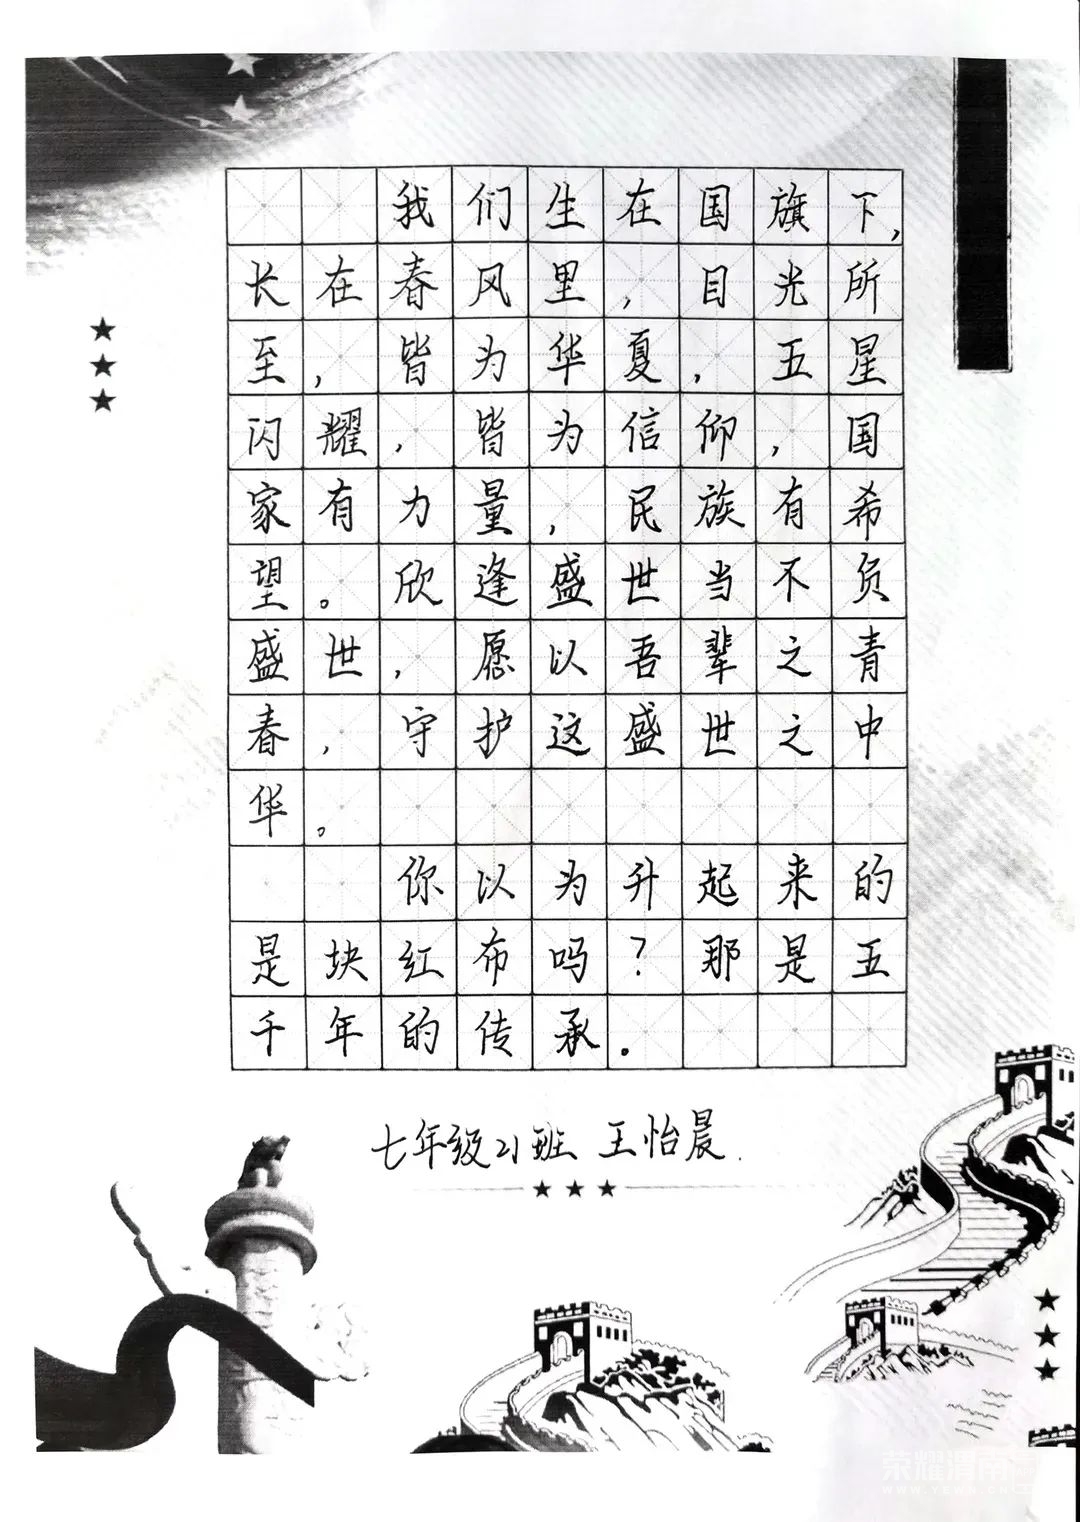 我们生在国旗下,
长在春风里,目光所
至,皆为华夏,五星
闪耀,皆为信仰,国
家有力量,民族有希
望。欣逢盛世当不负
盛世,愿以吾辈之青
春,守护这盛世之中
华。
你以为升起来的
是块红布吗?那是五
千年的传承。
七年级21班 王怡晨.
荣耀渭南网